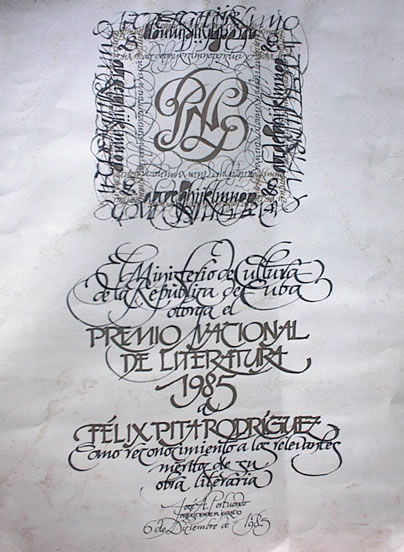 PNL
El Ministerio de Cultura
de la República de Cuba
otorga el
PREMIO NACIONAL
DE LITERATURA
1985
a
FÉLIX PITA RODRÍGUEZ
Como reconocimiento a los relevantes
méritos de su
obra literaria
José A. Portuondo
PRESIDENTE DEL JURADO
6 de Diciembre de 1985